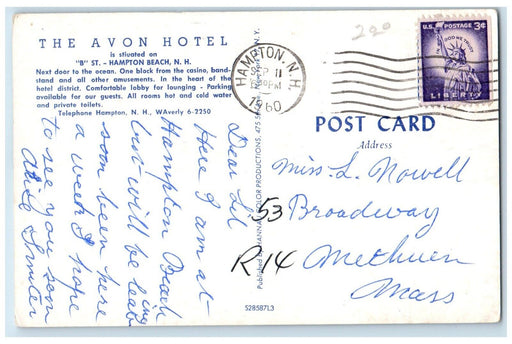 THE AVON HOTEL
is situated on
"B" ST. - HAMPTON BEACH, N. H.
Next door to the ocean. One block from the casino, band-
stand and all other amusements. In the heart of the
hotel district. Comfortable lobby for lounging - Parking
available for our guests. All rooms hot and cold water
and private toilets.
Telephone Hampton, N. H., WAverly 6-2250
Dear Lil
Here I am at
Hampton Beach
but will be leav
ing
soon been here
a week I hope
to see you soon
HAMPTON, N.H.
SEP 11
PM
1960
220
U.S. POSTAGE 3¢
IN GOD WE TRUST
LIBERTY
POST CARD
Address
Miss. L. Nowell
53 Broadway
R14 Methuen
Mass
Published by HANNAU COLOR PRODUCTIONS, 475 5th N.Y.
52858713